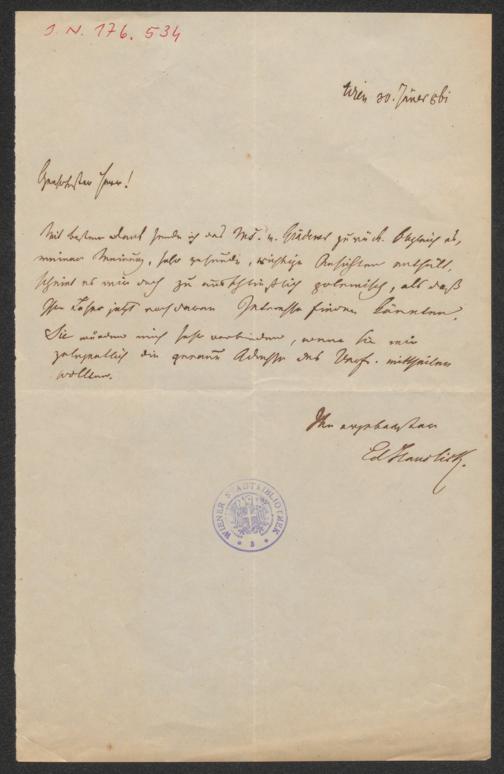 J. N. 176.534
Wien 30. Jäner 861
Geehrtester Herr!
Mit bestem Dank sende ich das Ms. v. zurück. Obgleich es,
meiner Meinung, sehr gesunde, wichtige Ansichten enthält,
scheint es mir doch zu ausschließlich polemisch, als daß
Leser jetzt noch daran Interesse finden könnten.
Sie würden mich sehr verbinden, wenn Sie mir
gelegentlich die genaue Adresse des Verf. mittheilen
wollten.
Ihr ergebenster
Ed Hanslick.
WIENER STADTBIBLIOTHEK